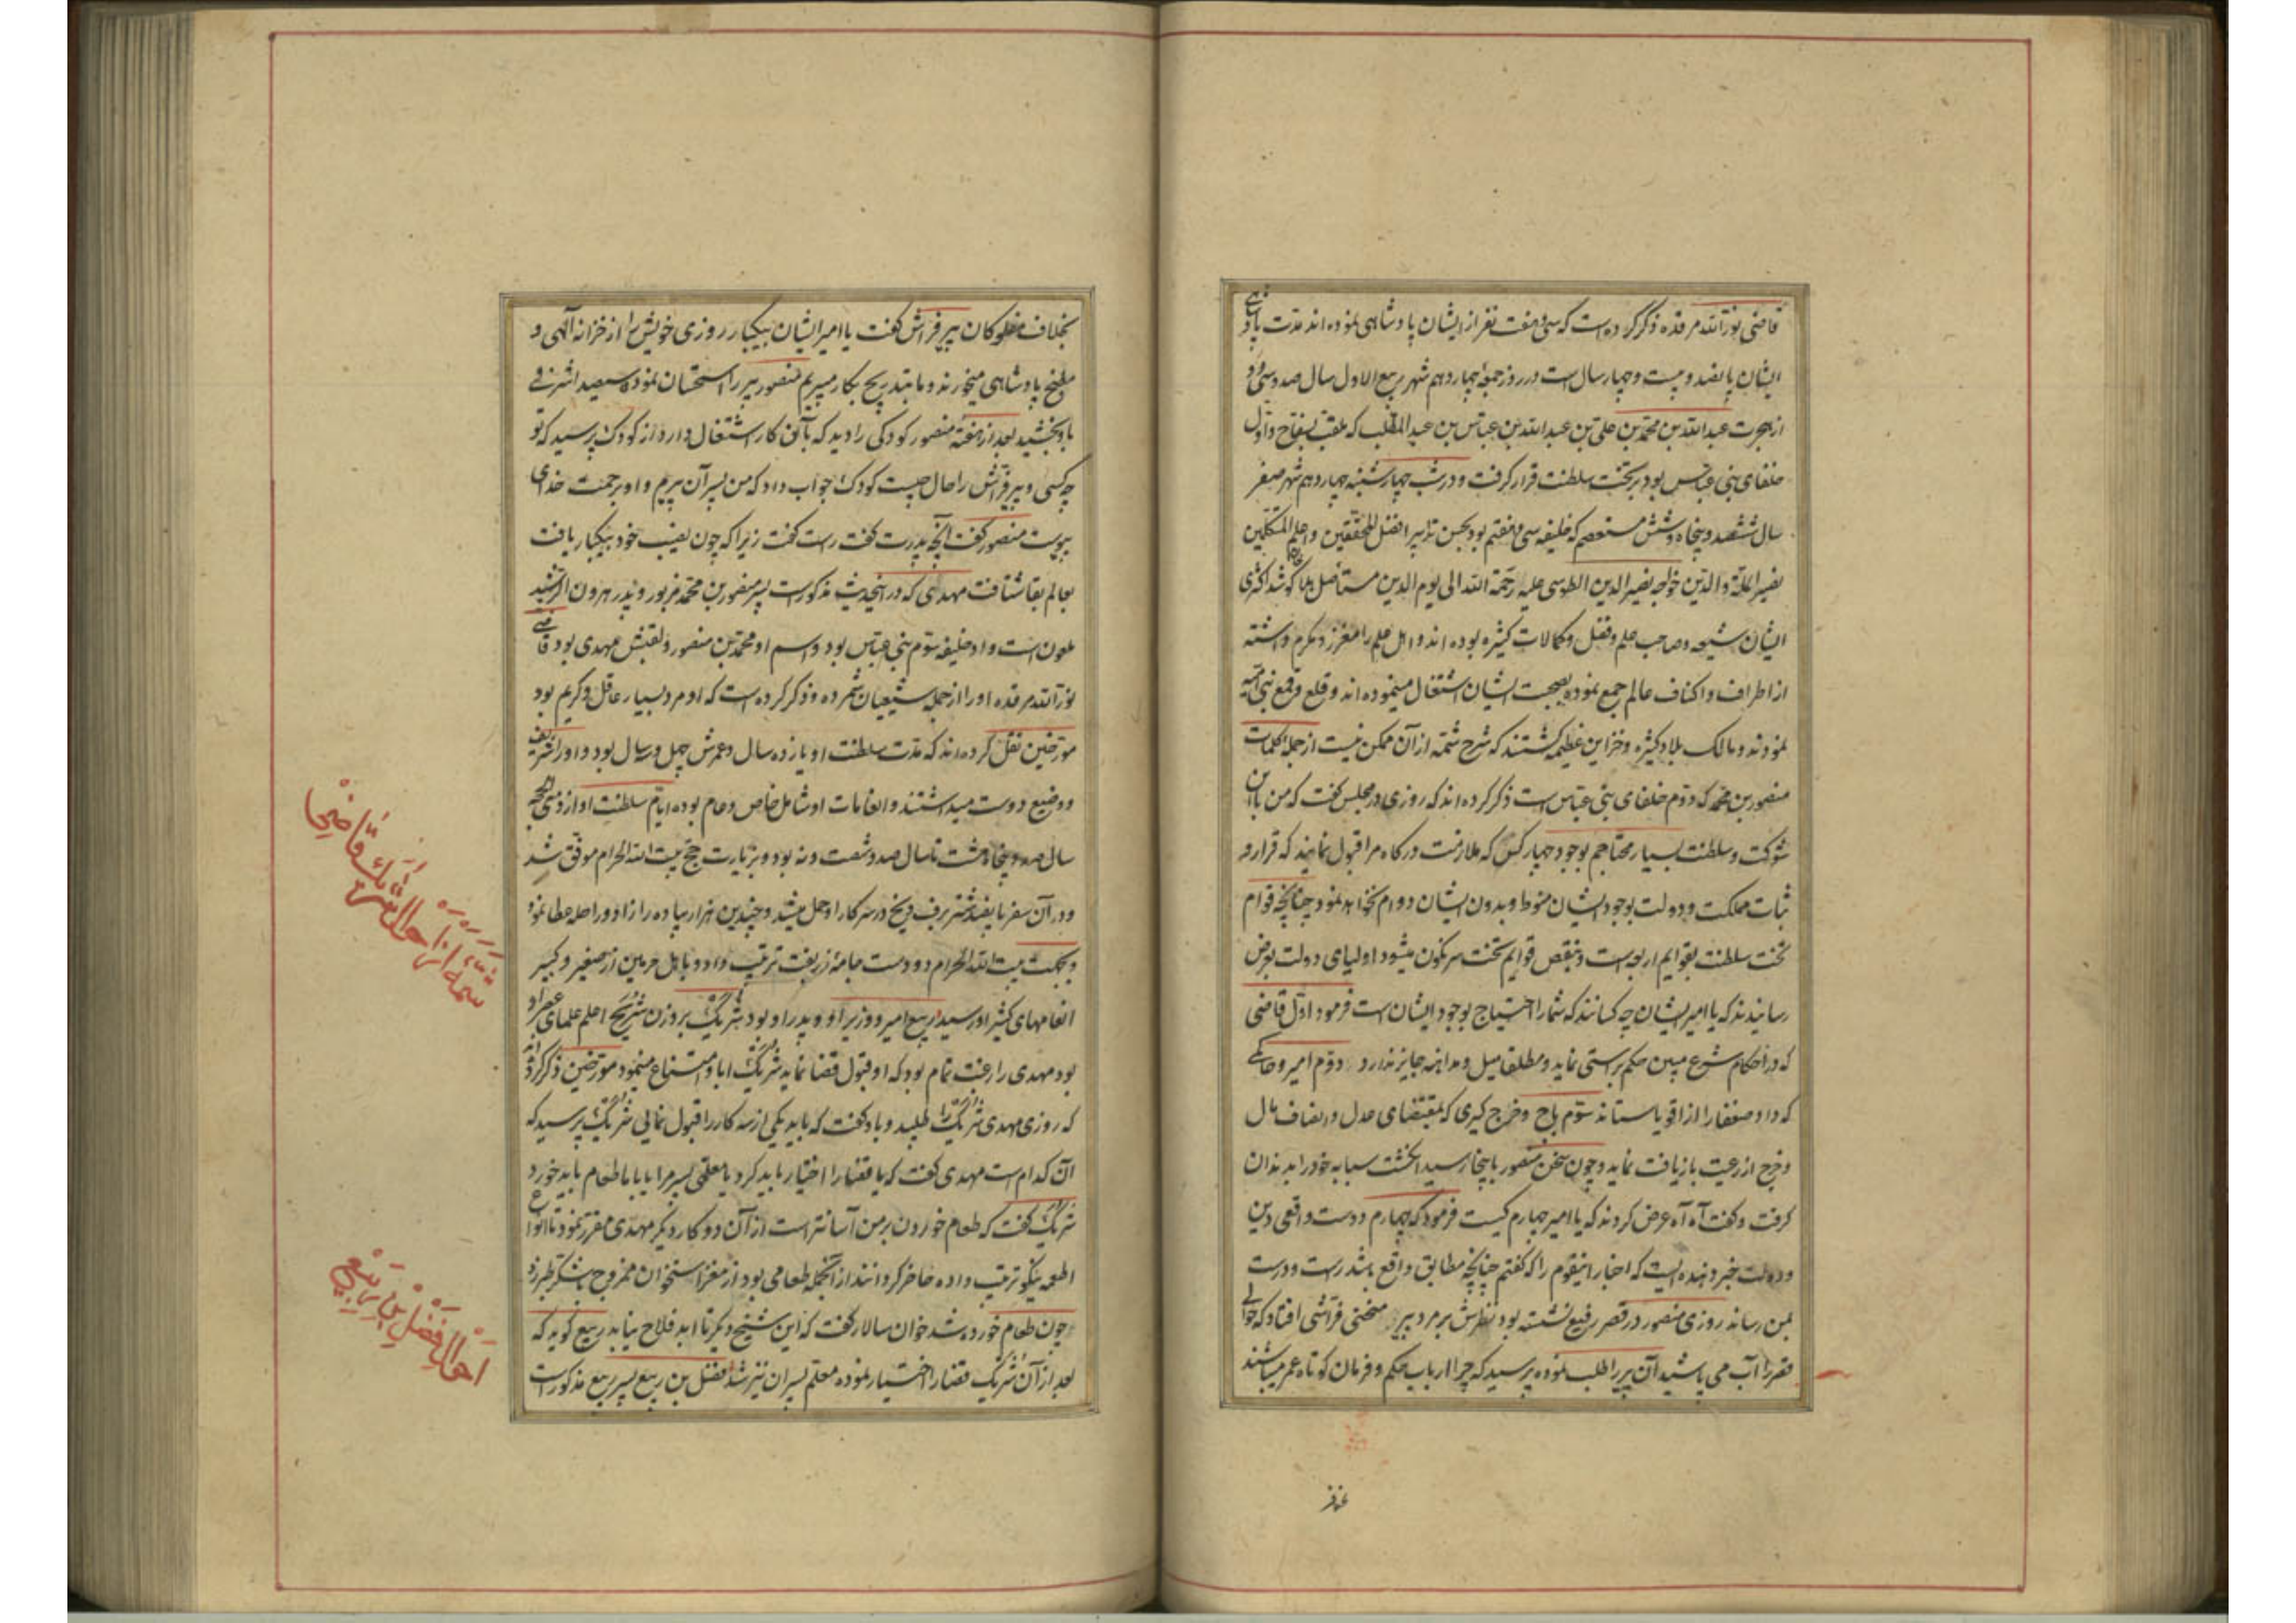 قاضی نورالله مرقده ذکر کرده است که سی و هفت نفر از ایشان پادشاهی نموده اند مدت پادشاهی
ایشان پانصد و بیست و چهار سال است در روز جمعه چهاردهم شهر ربیع الاول سال صد و سی و دو
از هجرت عبدالله بن محمد بن علی بن عبدالله بن عباس بن عبدالمطلب که ملقب بسفاح و اول
خلفای بنی عباس بود بر تخت سلطنت قرار گرفت و در شب چهارشنبه چهاردهم شهر صفر
سال ششصد و پنجاه و شش مستعصم که خلیفه سی و هفتم بود بحسن تدابیر افضل المحققین و اعلم المتکلمین
نصیر الملة والدین خواجه نصیر الدین الطوسی علیه رحمة الله الی یوم الدین مستأصل هلاکو شد اکثری
ایشان شیعه و صاحب علم و فضل و کمالات کثیره بوده اند و اهل علم را معزز و مکرم داشته
از اطراف و اکناف عالم جمع نموده بصحبت ایشان اشتغال مینموده اند و قلع و قمع بنی امیه
نمودند و مالک بلاد کثیره و خزاین عظیمه گشتند که شرح شمه از آن ممکن نیست از جمله کلمات
منصور بن محمد که دوم خلفای بنی عباس است ذکر کرده اند که روزی در مجلس گفت که من با این
شوکت و سلطنت بسیار محتاجم بوجود چهار کس که ملازمت درگاه مرا قبول نمایند که قرار و
ثبات مملکت و دولت بوجود ایشان منوط و بدون ایشان دوام نخواهد نمود چنانچه قوام
تخت سلطنت بقوایم اربعه است و بنقص قوایم تخت سرنگون میشود اولیای دولت بعرض
رسانیدند که یا امیر ایشان چه کسانند که شما را احتیاج بوجود ایشان است فرمود اول قاضی
که در احکام شرع مبین حکم براستی نماید و مطلقا میل و مداهنه جایز ندارد دوم امیر و حاکمی
که داد ضعفا را از اقویا ستاند سوم باج و خرج گیری که بمقتضای عدل و انصاف مال
و خرج از رعیت بازیافت نماید و چون سخن منصور باینجا رسید انگشت سبابه خود را بدندان
گرفت و گفت آه آه عرض کردند که یا امیر چهارم کیست فرمود که چهارم دوست واقعی دین
و دولت خبر دهنده ایست که اخبار اینقوم را که گفتم چنانچه مطابق واقع باشد راست و درست
بمن رساند روزی منصور در قصر رفیع نشسته بود نظرش بر مرد پیر منحنی فراشی افتاد که حوالی
قصر را آب می پاشید آن پیر را طلب نموده پرسید که چرا ارباب حکم و فرمان کوتاه عمر میباشند
بخلاف مفلوکان پیر فراش گفت یا امیر ایشان بیکبار روزی خویش را از خزانه الهی و
مطبخ پادشاهی میخورند و ما بتدریج بکار میبریم منصور پیر را استحسان نموده سیصد اشرفی
باو بخشید بعد از هفته منصور کودکی را دید که بآن کار اشتغال دارد از کودک پرسید که تو
چه کسی و پیر فراش را حال چیست کودک جواب داد که من پسر آن پیرم و او برحمت خدای
پیوست منصور گفت آنچه پدرت گفت راست گفت زیرا که چون نصیب خود بیکبار یافت
بعالم بقا شتافت مهدی که در اینحدیث مذکور است پسر منصور بن محمد مزبور و پدر هرون الرشید
ملعون است و او خلیفه سوم بنی عباس بود و اسم او محمد بن منصور و لقبش مهدی بود قاضی
نورالله مرقده او را از جمله شیعیان شمرده و ذکر کرده است که او مرد بسیار عاقل و کریم بود
مورخین نقل کرده اند که مدت سلطنت او یازده سال و عمرش چهل و سال بود و او را شریف
و وضیع دوست میداشتند و انعامات او شامل خاص و عام بوده ایام سلطنت او از ذی الحجه
سال صد و پنجاه و هشت تا سال صد و شصت و نه بود و بزیارت حج بیت الله الحرام موفق شد
و در آن سفر پانصد شتر برف و یخ در سرکار او حمل میشد و چندین هزار پیاده را زاد و راحله عطا نمود
و بجهت بیت الله الحرام دو دست جامه زربفت ترتیب داد و باهل حرمین از صغیر و کبیر
انعامهای کثیر او رسید ربیع امیر و وزیر او و پدر او بود شریک بر وزن شریح اعلم علمای عصر او
بود مهدی را رغبت تمام بود که او قبول قضا نماید شریک ابا و امتناع مینمود مورخین ذکر کرده اند
که روزی مهدی شریک را طلبید و باو گفت که باید یکی از سه کار را قبول نمایی شریک پرسید که
آن کدام است مهدی گفت که یا قضا را اختیار باید کرد یا معلمی پسر مرا یا با ما طعام باید خورد
شریک گفت که طعام خوردن بر من آسانتر است از آن دو کار دیگر مهدی مقرر نمود تا انواع
اطعمه نیکو ترتیب داده حاضر گردانند از آنجمله طعامی بود از مغز استخوان ممزوج بشکر طبرزد
چون طعام خورده شد خوان سالار گفت که این شیخ دیگر تا ابد فلاح نیابد ربیع گوید که
بعد از آن شریک قضا را اختیار نموده معلم پسران نیز شد فضل بن ربیع پسر ربیع مذکور است
شمة از احوال شریک قاضی
احوال فضل بن ربیع